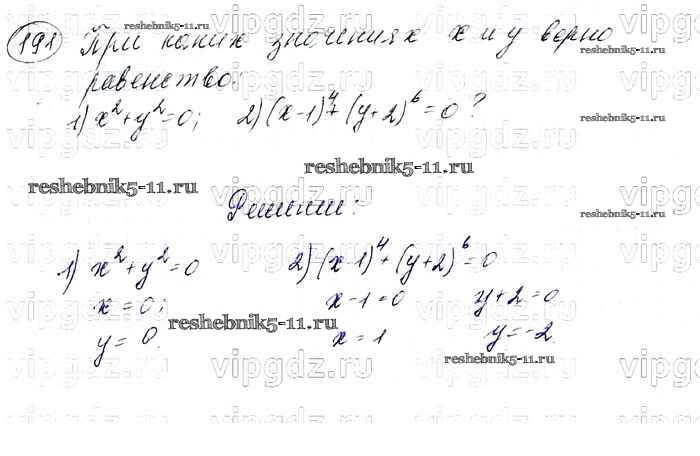 191 При каких значениях x и y верно
равенство:
1) x² + y² = 0; 2) (x-1)⁴ + (y+2)⁶ = 0 ?
Решение:
1) x² + y² = 0 2) (x-1)⁴ + (y+2)⁶ = 0
x = 0; x-1=0 y+2=0
y = 0. x = 1 y = -2
reshebnik5-11.ru
reshebnik5-11.ru
reshebnik5-11.ru
reshebnik5-11.ru
reshebnik5-11.ru
reshebnik5-11.ru
reshebnik5-11.ru
reshebnik5-11.ru
vipgdz.ru